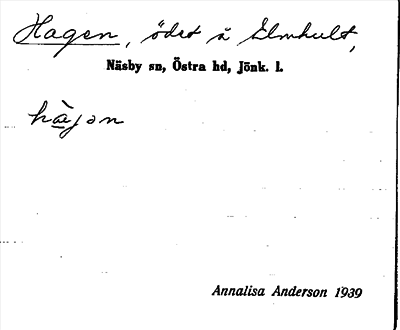 Hagen, ödet å Elmhult,
Näsby sn, Östra hd, Jönk. l.
hàjən
Annalisa Anderson 1939